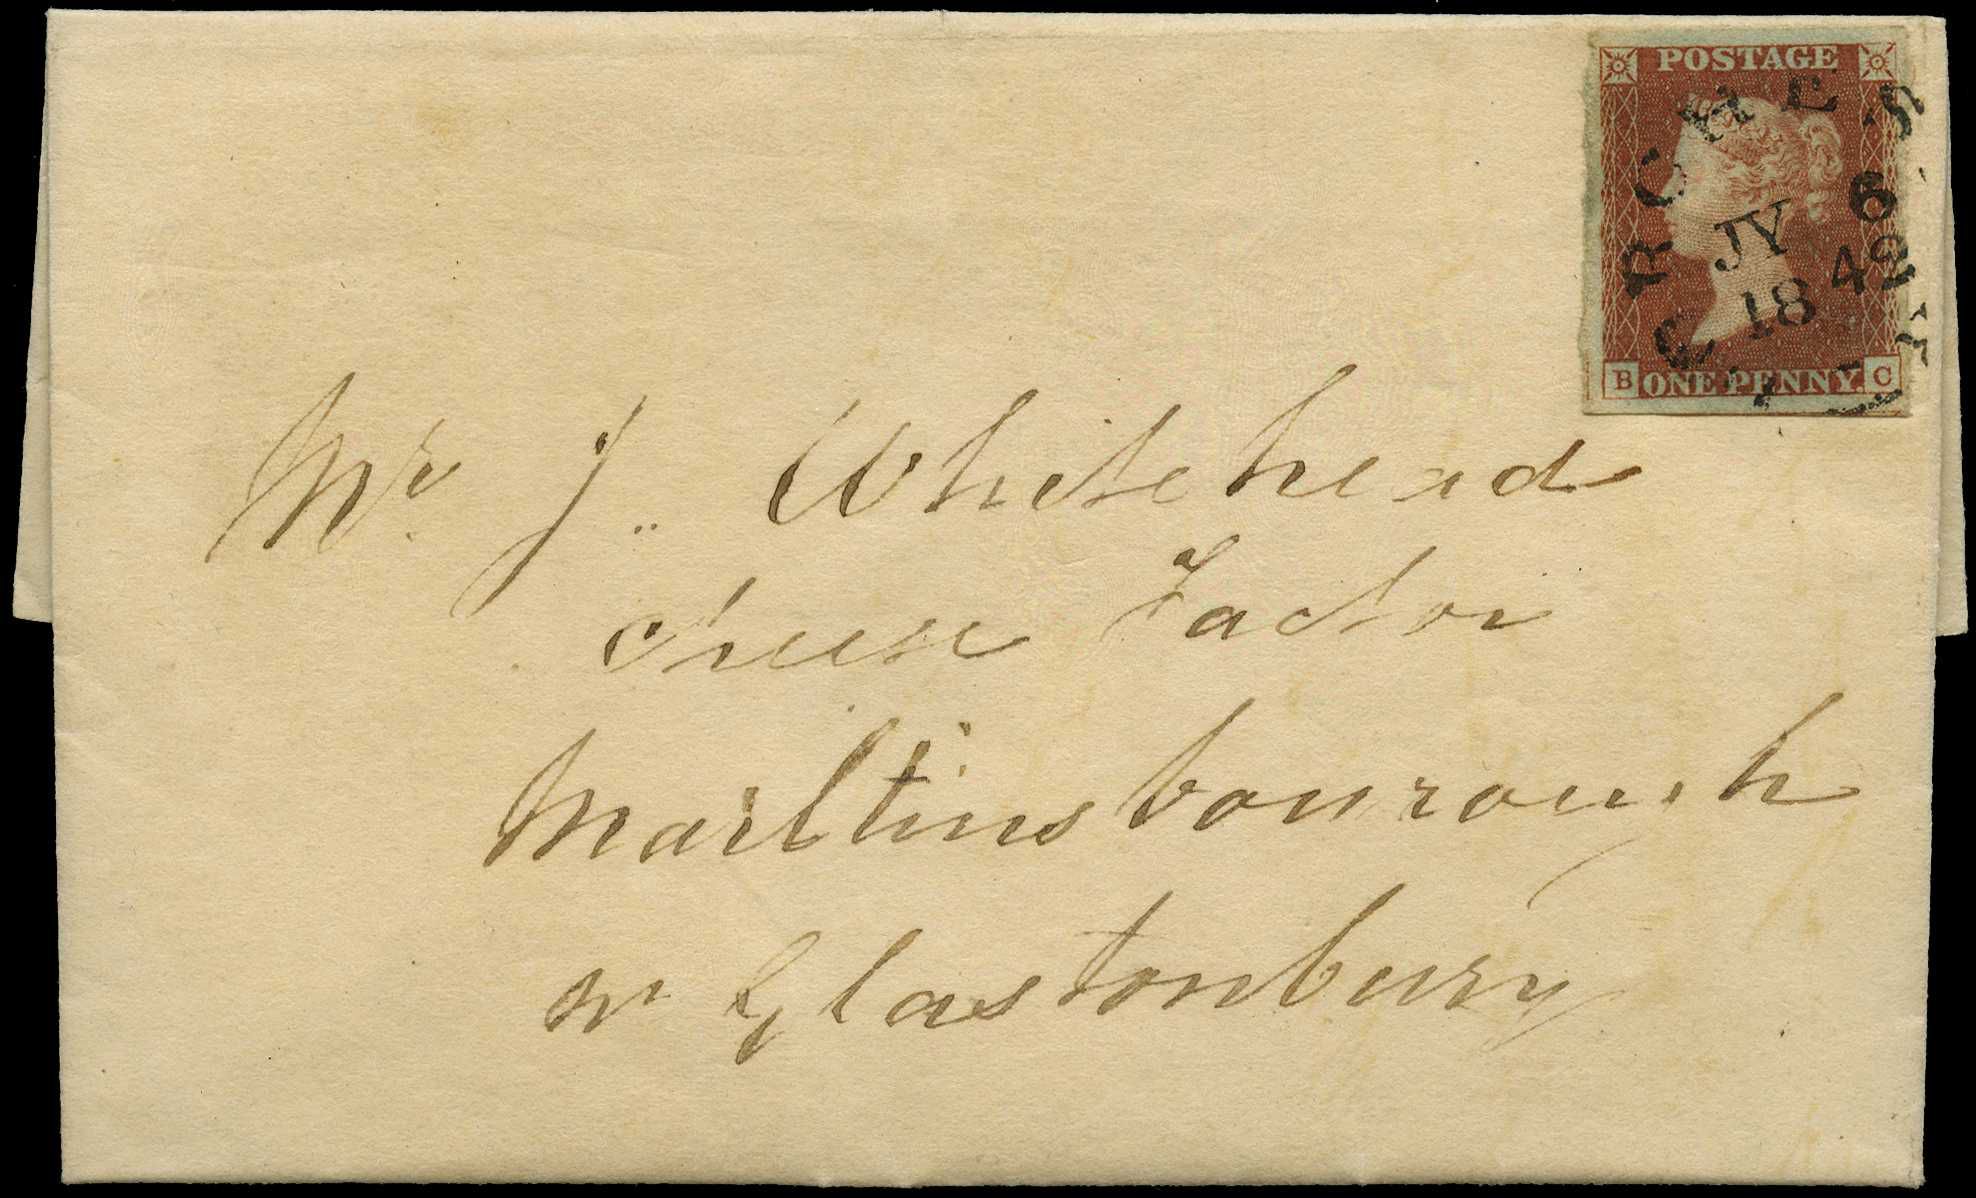 POSTAGE
DORCHESTER
JY 6
1842
B ONE PENNY. C
Mr. J.. Whitehead
Cheese Factor
Martinsbourough
Nr Glastonbury